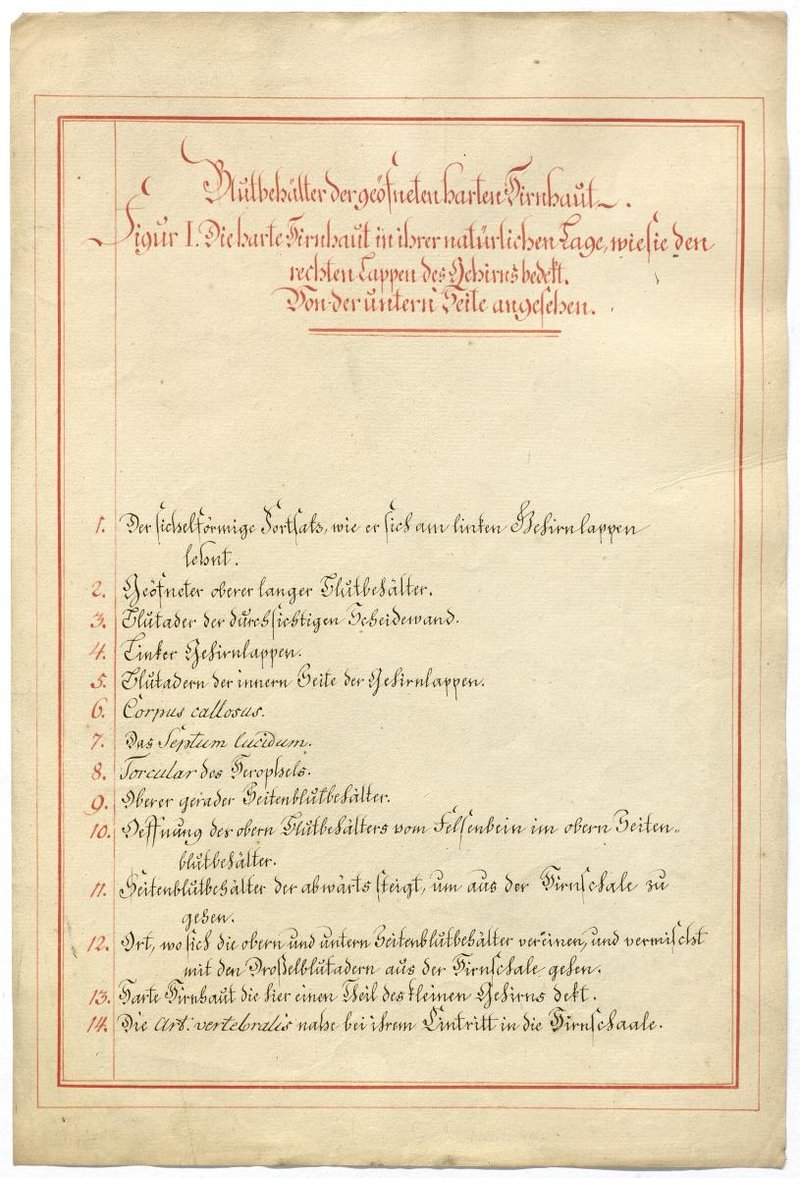 Blutbehälter der geöfneten harten Hirnhaut.
Figur I. Die harte Hirnhaut in ihrer natürlichen Lage, wie sie den
rechten Lappen des Gehirns bedekt.
Von der untern Seite angesehen.
1. Der sichelförmige Fortsats, wie er sich am linken Gehirnlappen
lehnt.
2. Geöfneter oberer langer Blutbehälter.
3. Blutader der durchsichtigen Scheidewand.
4. Linker Gehirnlappen.
5. Blutadern der innern Seite der Gehirnlappen.
6. Corpus callosus.
7. Das Septum lucidum.
8. Torcular des Herophels.
9. Oberer gerader Seitenblutbehälter.
10. Oeffnung des obern Blutbehälters vom Felsenbein im obern Seiten„
blutbehälter.
11. Seitenblutbehälter der abwärts steigt, um aus der Hirnschale zu
gehen.
12. Ort, wo sich die obern und untern Seitenblutbehälter vereinen, und vermischt
mit den Droßelblutadern aus der Hirnschale gehen.
13. Harte Hirnhaut die hier einen Theil des kleinen Gehirns dekt.
14. Die Art: vertebralis nahe bei ihrem Eintritt in die Hirnschaale.